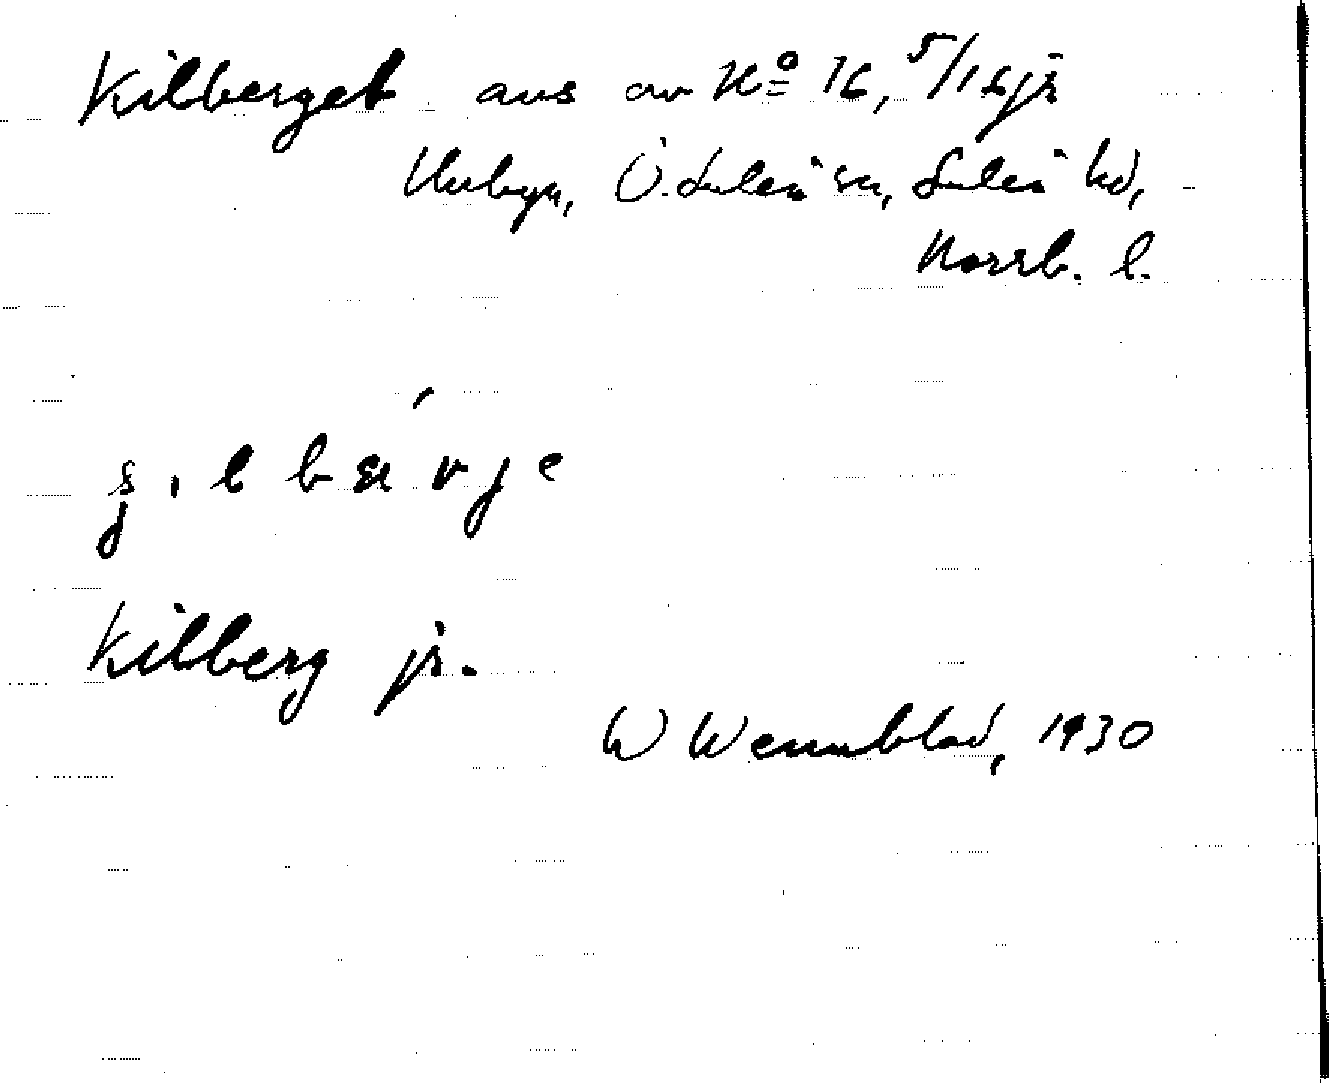 Kilberget avs av Nº 16, 5/16 jr
Unbyn, Ö. Luleå sn, Luleå hd,
Norrb. l.
Kilberg jr.
W Wennblad, 1930